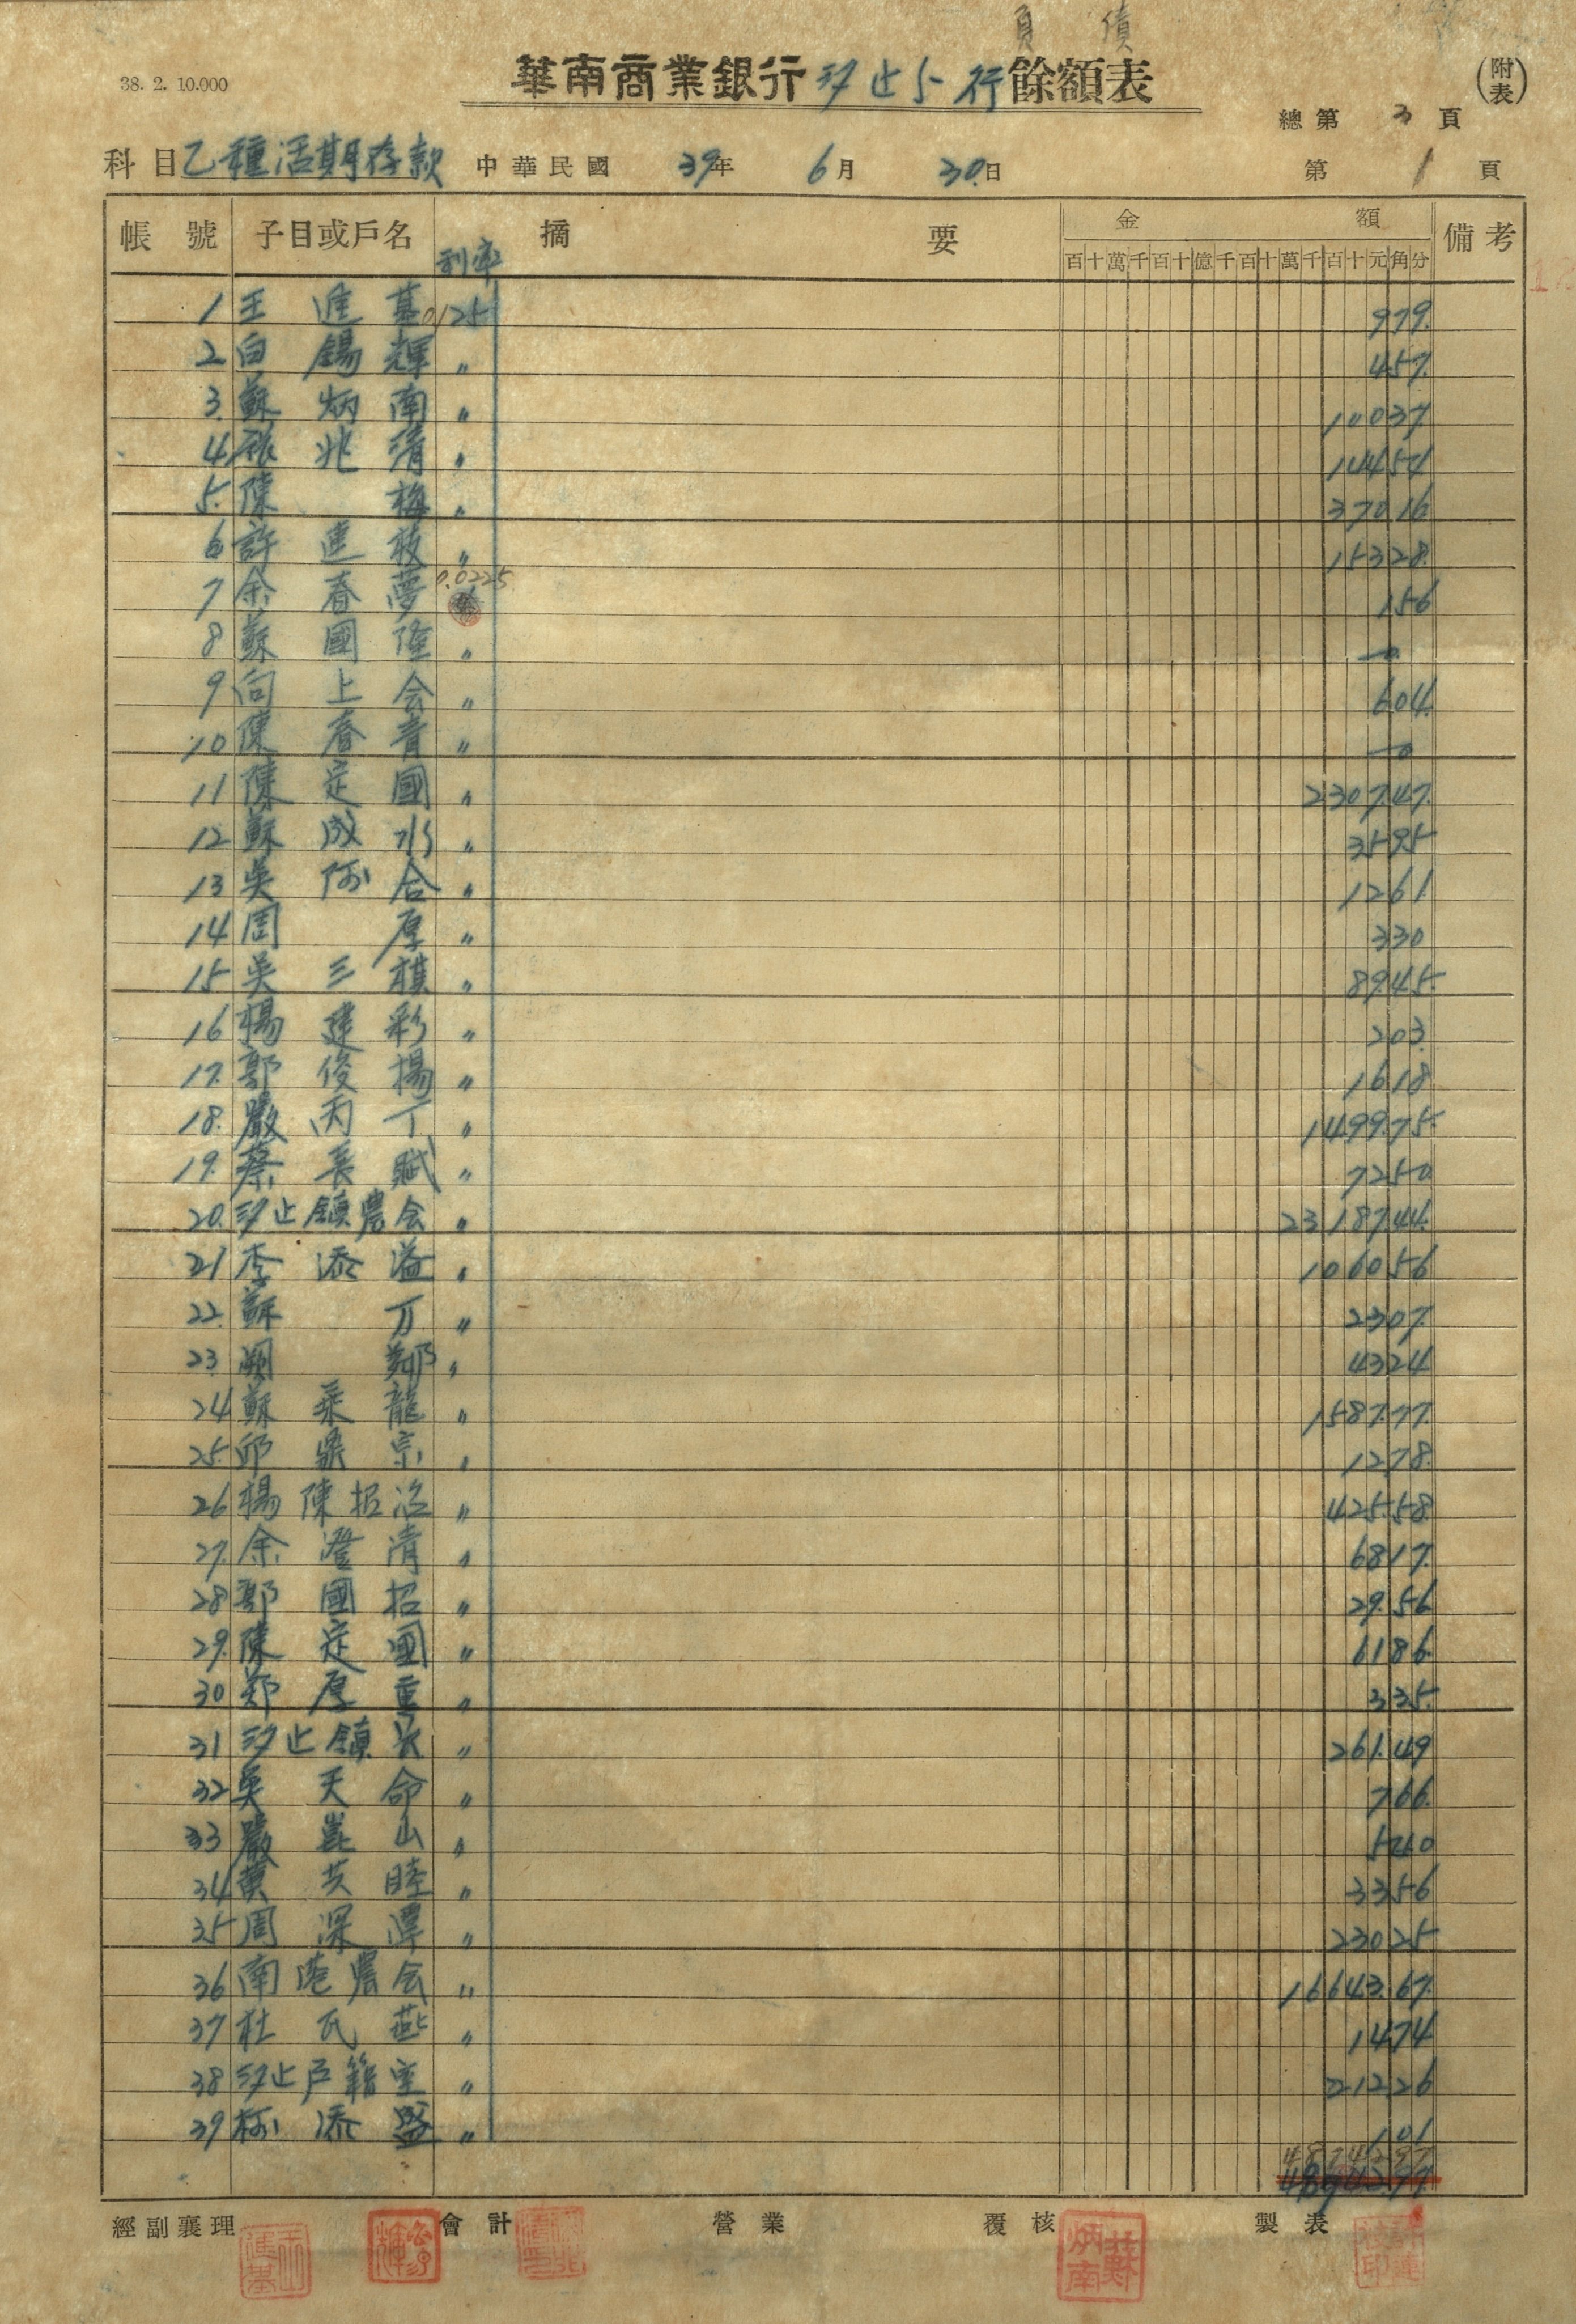 負債
38. 2. 10.000
華南商業銀行汐止分行餘額表
(附表)
總第 3 頁
科目 乙種活期存款 中華民國 39年 6月 30日 第 1 頁
帳號 子目或戶名 摘要 金額 備考
利率 百十萬千百十億千百十萬千百十元角分
1 王進基 0.125 9.79
2 白錫輝 〃 4.57
3 蘇炳南 〃 100.37
4 張兆清 〃 144.54
5 陳梅 〃 370.16
6 許連枝 〃 153.28
7 余春夢 0.0225 1.56
8 蘇國隆 〃 0
9 向上会 〃 6.04
10 陳春青 〃 0
11 陳定國 〃 2307.47
12 蘇成水 〃 35.95
13 吳阿合 〃 12.61
14 周厚 〃 3.30
15 吳三棋 〃 89.45
16 楊建彩 〃 2.03
17 郭俊揚 〃 16.18
18 嚴丙丁 〃 1499.75
19 蔡長賦 〃 72.50
20 汐止鎮農会 〃 23187.44
21 李添溢 〃 1060.56
22 蘇万 〃 23.07
23 鄭 〃 43.24
24 蘇乘龍 〃 1587.77
25 邱鼎宗 〃 12.78
26 楊陳招治 〃 425.58
27 余澄清 〃 68.17
28 郭國招 〃 29.56
29 陳定國 〃 61.86
30 郑厚重 〃 3.35
31 汐止鎮長 〃 261.49
32 吳天命 〃 7.66
33 嚴崑山 〃 5.40
34 黃芡睦 〃 33.56
35 周深潭 〃 230.25
36 南港農会 〃 16643.67
37 杜氏燕 〃 14.74
38 汐止戶籍室 〃 212.26
39 林添盛 〃 1.01
經副襄理 會計 營業 覆核 製表
王進基
蘇炳南